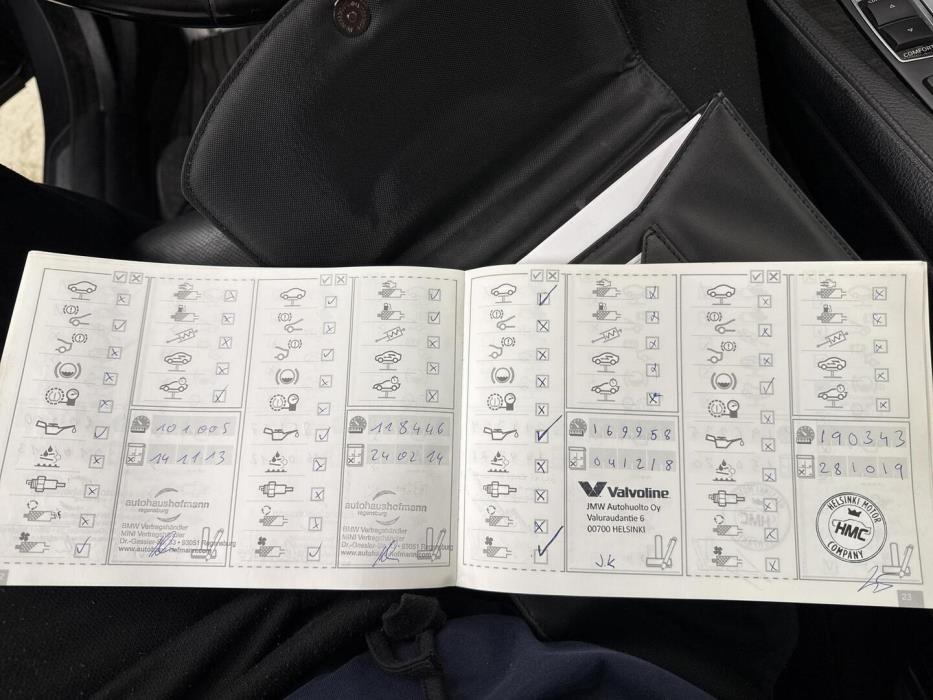 COMFORT
101.005
14 11 13
autohaushofmann
regensburg
BMW Vertragshändler
MINI Vertragshändler
93051 Regensburg
118446
24 02 14
autohaushofmann
regensburg
BMW Vertragshändler
MINI Vertragshändler
93051 Regensburg
169958
041218
Valvoline
JMW Autohuolto Oy
Valuraudantie 6
00700 HELSINKI
J.K
190343
281019
HELSINKI MOTOR
HMC
COMPANY
23